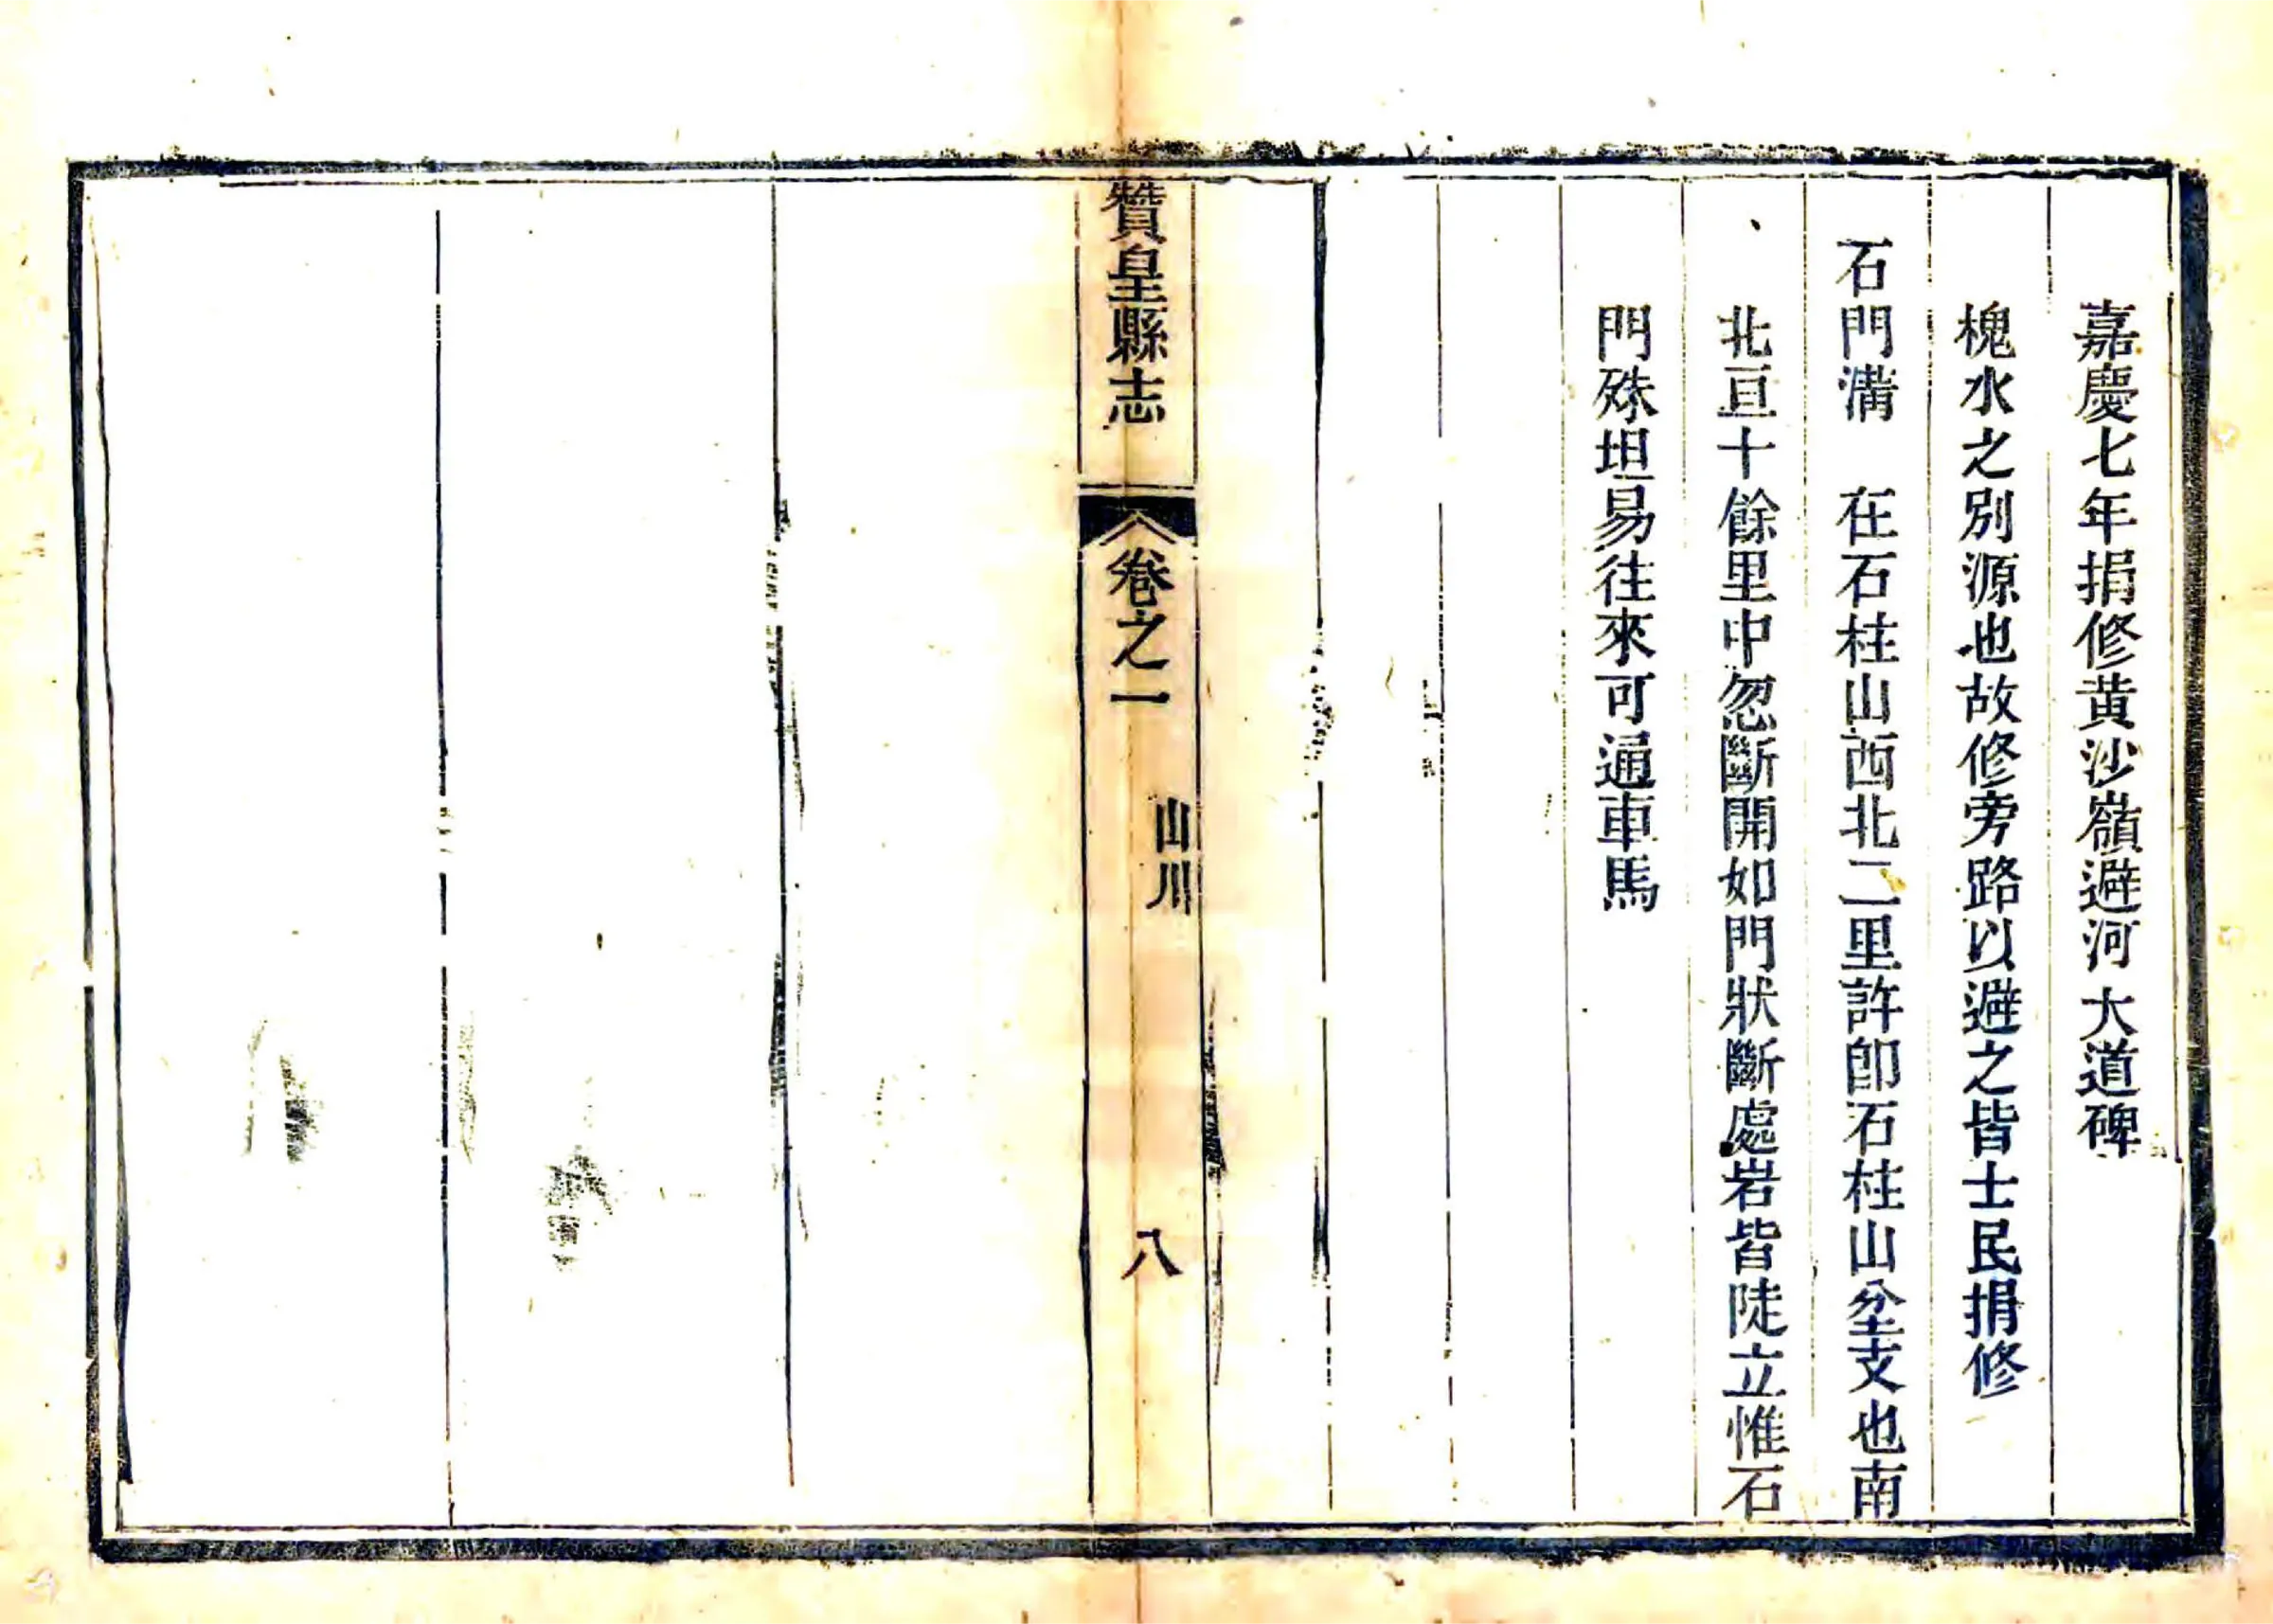 嘉慶七年捐修黄沙嶺避河大道碑
槐水之別源也故修旁路以避之皆士民捐修
石門溝　在石柱山西北二里許卽石柱山坌支也南
北亘十餘里中忽斷開如門狀斷處岩皆陡立惟石
門殊坦易往來可通車馬
贊皇縣志
卷之一
山川
八